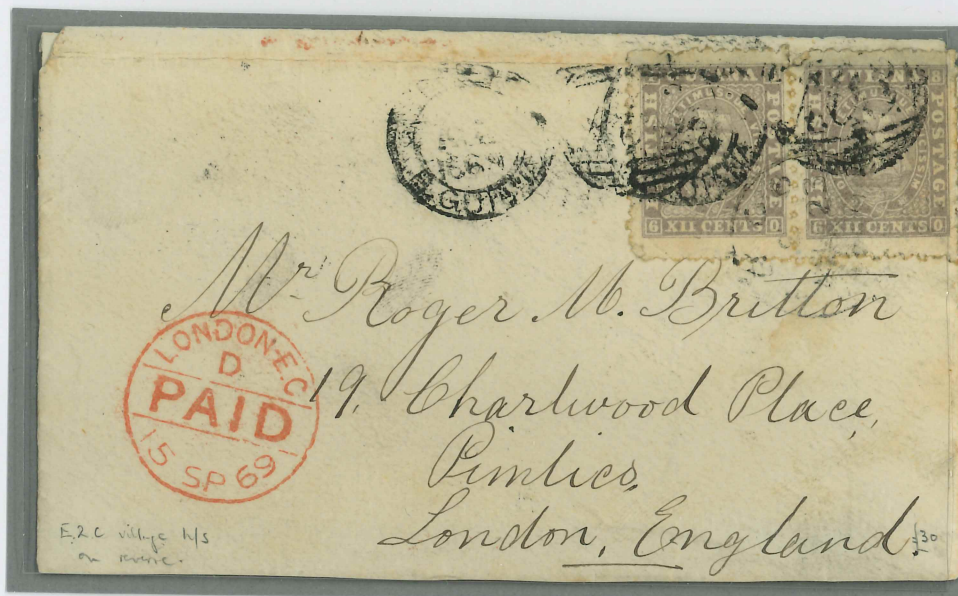 1869
B. GUIANA
BRITISH GUIANA POSTAGE
XII CENTS
GUIANA
POSTAGE
XII CENTS
Mr Roger M. Britton
19. Charlwood Place,
Pimlico,
London, England.
LONDON-E.C
D
PAID
15 SP 69
E.2 C village h/s
on reverse.
£30